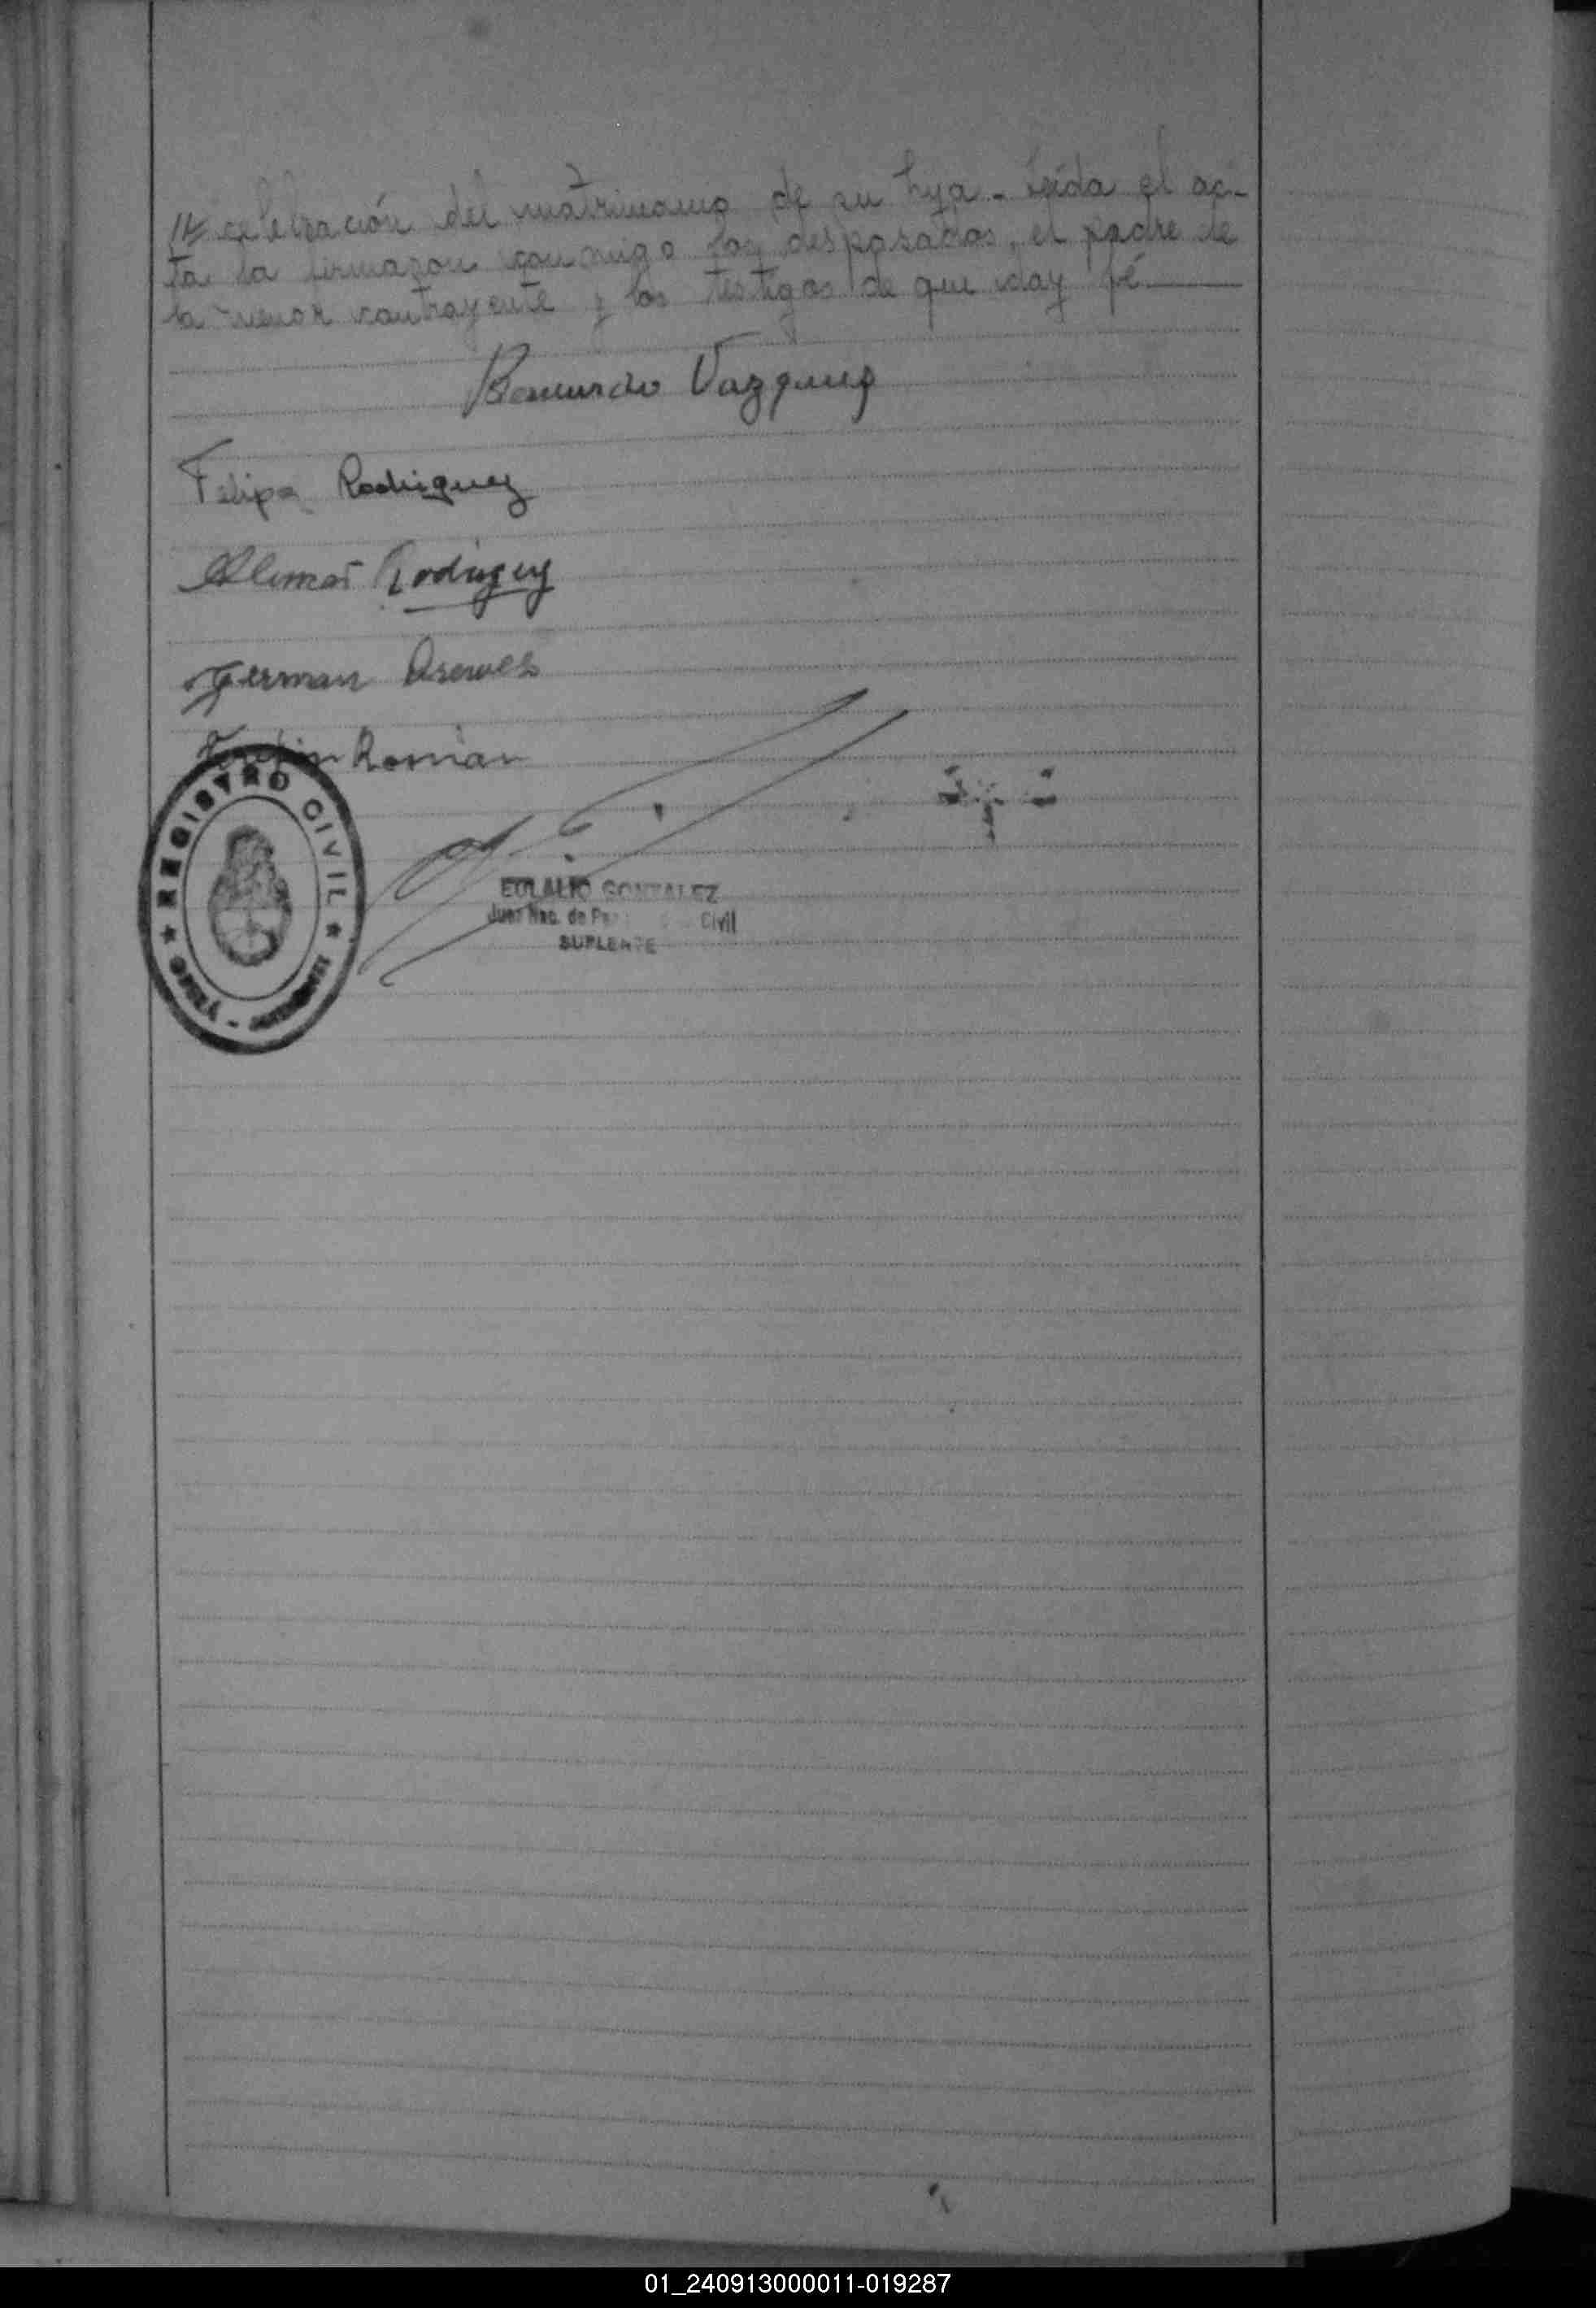 celebración del matrimonio de su hija - Leída el ac-
ta la firmaron conmigo los desposados, el padre de
la menor contrayente y los testigos de que doy fé
Vazquez
Felipa Rodriguez
Rodriguez
German
Roman
REGISTRO CIVIL
EULALIO GONZALEZ
Juez Nac. de Paz Civil
SUPLENTE
01_240913000011-019287